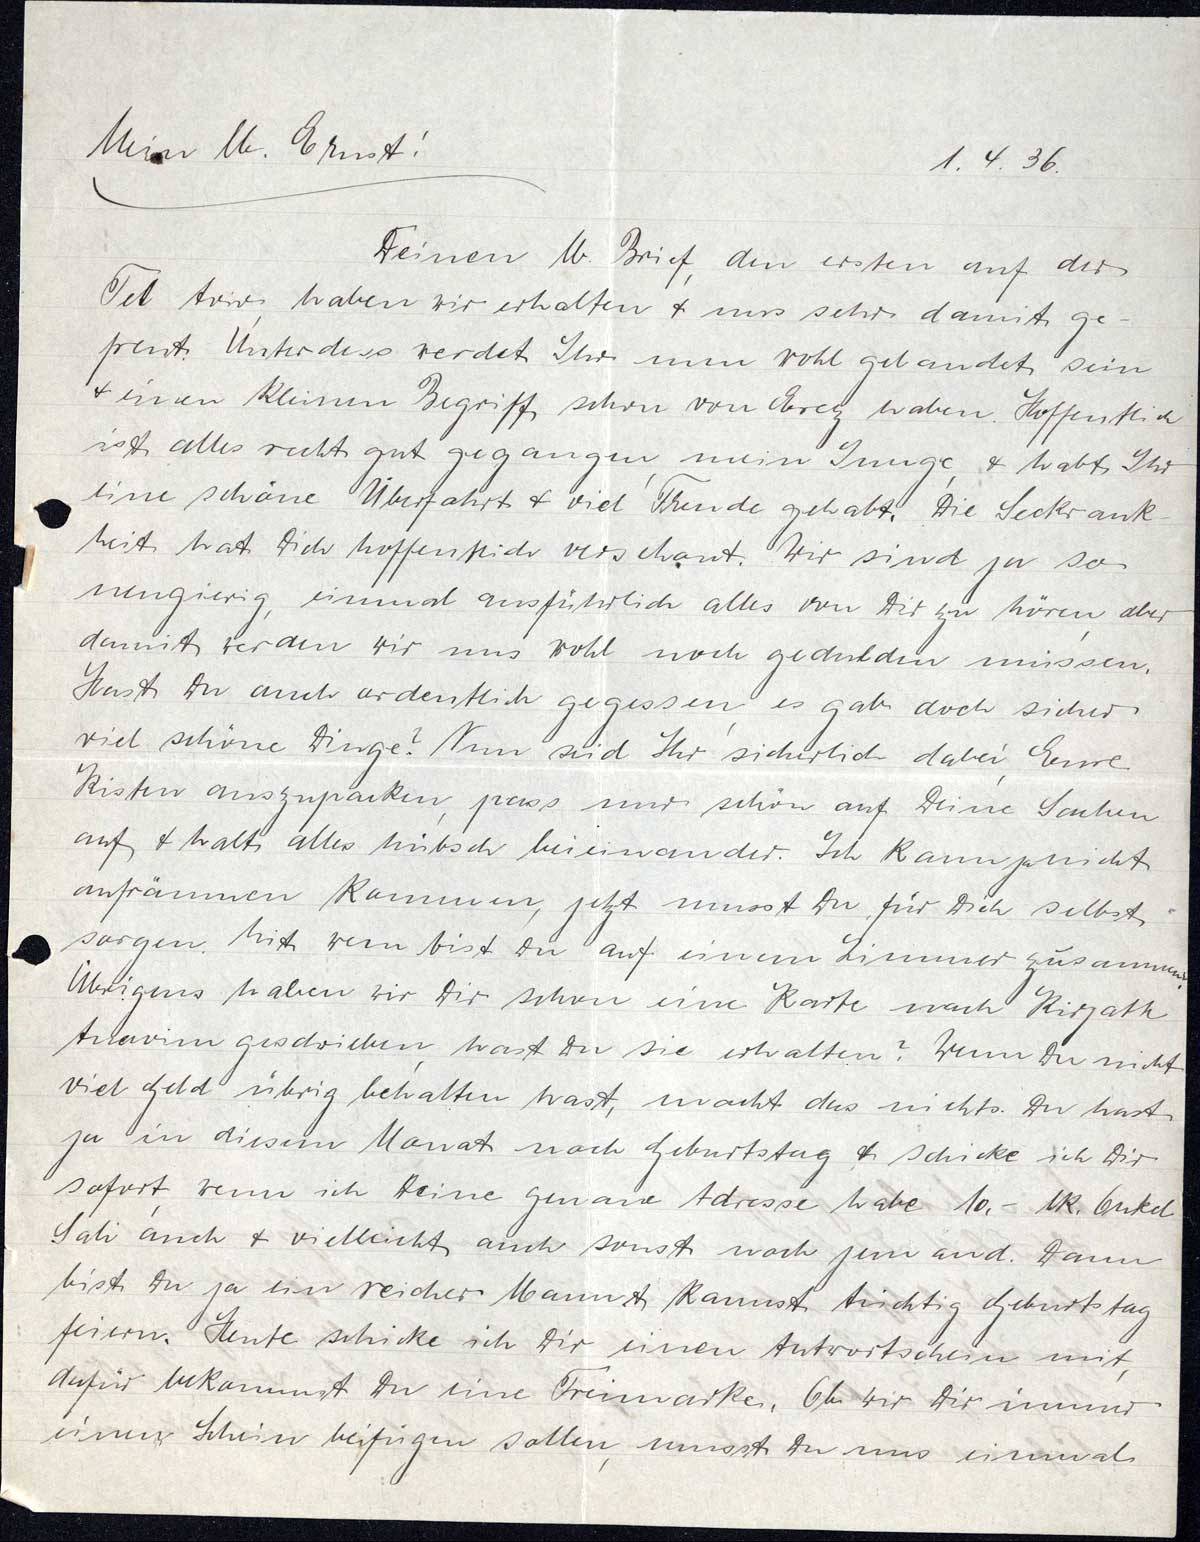 Mein lb. Ernst!
1. 4. 36.
Deinen lb. Brief, den ersten auf der
Tel Aviv, haben wir erhalten & uns sehr damit ge-
freut. Unterdess werdet Ihr nun wohl gelandet sein
& einen kleinen Begriff schon von Erez haben. Hoffentlich
ist alles recht gut gegangen, mein Junge, & habt Ihr
eine schöne Überfahrt & viel Freude gehabt. Die Seekrank-
heit hat Dich hoffentlich verschont. Wir sind ja so
neugierig, einmal ausführlich alles von Dir zu hören, aber
damit werden wir uns wohl noch gedulden müssen.
Hast Du auch ordentlich gegessen, es gab doch sicher
viel schöne Dinge? Nun seid Ihr sicherlich dabei, Eure
Kisten auszupacken, pass nur schön auf Deine Sachen
auf & halt alles hübsch beieinander. Ich kann ja nicht
aufräumen kommen, jetzt musst Du für Dich selbst
sorgen. Mit wem bist Du auf einem Zimmer zusammen?
Übrigens haben wir Dir schon eine Karte nach Kirjath
Anavim geschrieben, hast Du sie erhalten? Wenn Du nicht
viel Geld übrig behalten hast, macht das nichts. Du hast
ja in diesem Monat noch Geburtstag & schicke ich Dir
sofort, wenn ich Deine genaue Adresse habe 10.- Mk. Onkel
Sali auch & vielleicht auch sonst noch jemand. Dann
bist Du ja ein reicher Mann & kannst tüchtig Geburtstag
feiern. Heute schicke ich Dir einen Antwortschein mit,
dafür bekommst Du eine Freimarke. Ob wir Dir immer
einen Schein beifügen sollen, musst Du uns einmal